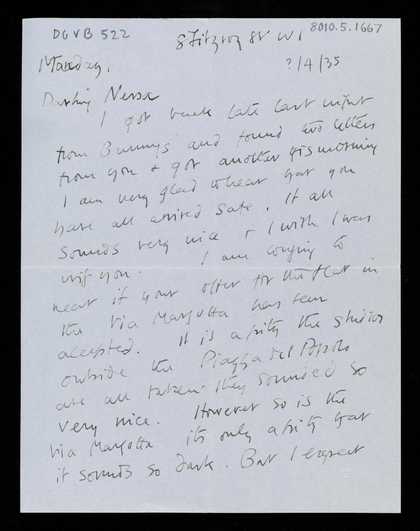 DGVB 522
8010.5.1667
8 Fitzroy St W1
Monday.
?/4/35
Darling Nessa
I got back late last night
from Bunny's and found two letters
from you & got another this morning
I am very glad to hear that you
have all arrived safe. It all
sounds very nice & I wish I was
with you. I am longing to
hear if your offer for the flat in
the Via Margutta has been
accepted. It is a pity the studios
outside the Piazza del Popolo
are all taken. They sounded so
very nice. However so is the
Via Margutta its only a pity that
it sounds so dark. But I expect